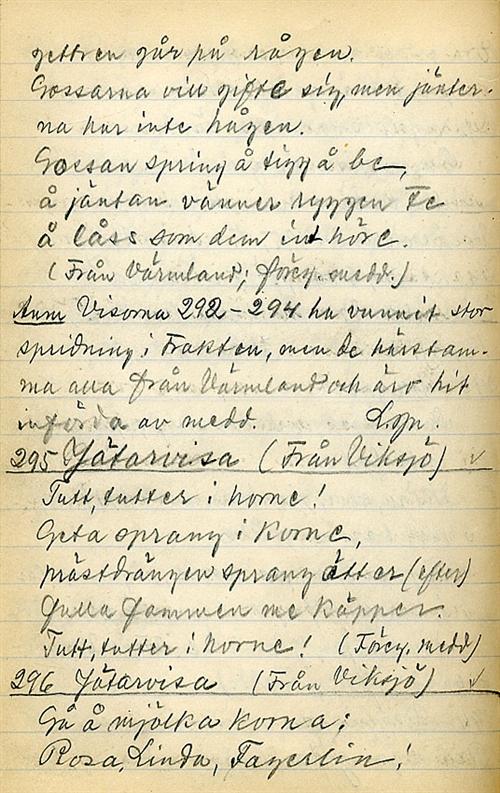 gettren går på rågen.
Gossarna vill gifte sig, men jänter-
na har inte hågen.
Gossan spring å tigg å be,
å jäntan vänner ryggen te
å låss som dem int höre.
(Från Värmland; föreg. medd.)
Anm Visorna 292-294 ha vunnit stor
spridning i Trakten, men de härstam-
ma alla från Värmland och äro hit
införda av medd.
295 Jätarvisa (Från Viksjö) √
Tutt, tutter i horne!
Geta sprang i Korne,
prästdrängen sprang ätter (efter)
fulla famnen me käpper.
Tutt, tutter i horne! (Föreg. medd)
296 Jätarvisa (Från Viksjö) √
Gå å mjölka korna:
Rosa, Linda, Fagerlin!